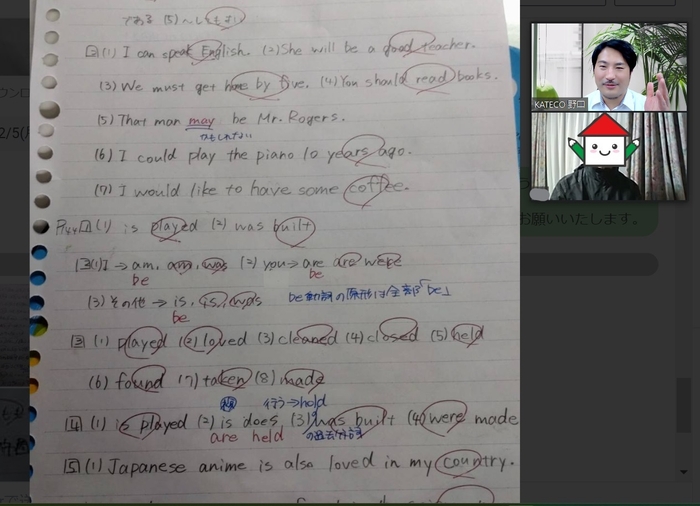 である (5)へしてもよい
2 (1) I can speak English. (2) She will be a good teacher.
(3) We must get home by five. (4) You should read books.
(5) That man may be Mr. Rogers.
かもしれない
(6) I could play the piano 10 years ago.
(7) I would like to have some coffee.
P.44 1 (1) is played (2) was built
2 (1) I → am, am, was (2) you → are are were
be be
(3) その他 → is, is, was be動詞の原形は全部「be」
be
3 (1) played (2) loved (3) cleaned (4) closed (5) held
(6) found (7) taken (8) made
行う→hold
4 (1) is played (2) is does (3) was built (4) were made
are held の過去分詞
5 (1) Japanese anime is also loved in my country.
KATECO 野口
2/5(
お願いいたします。